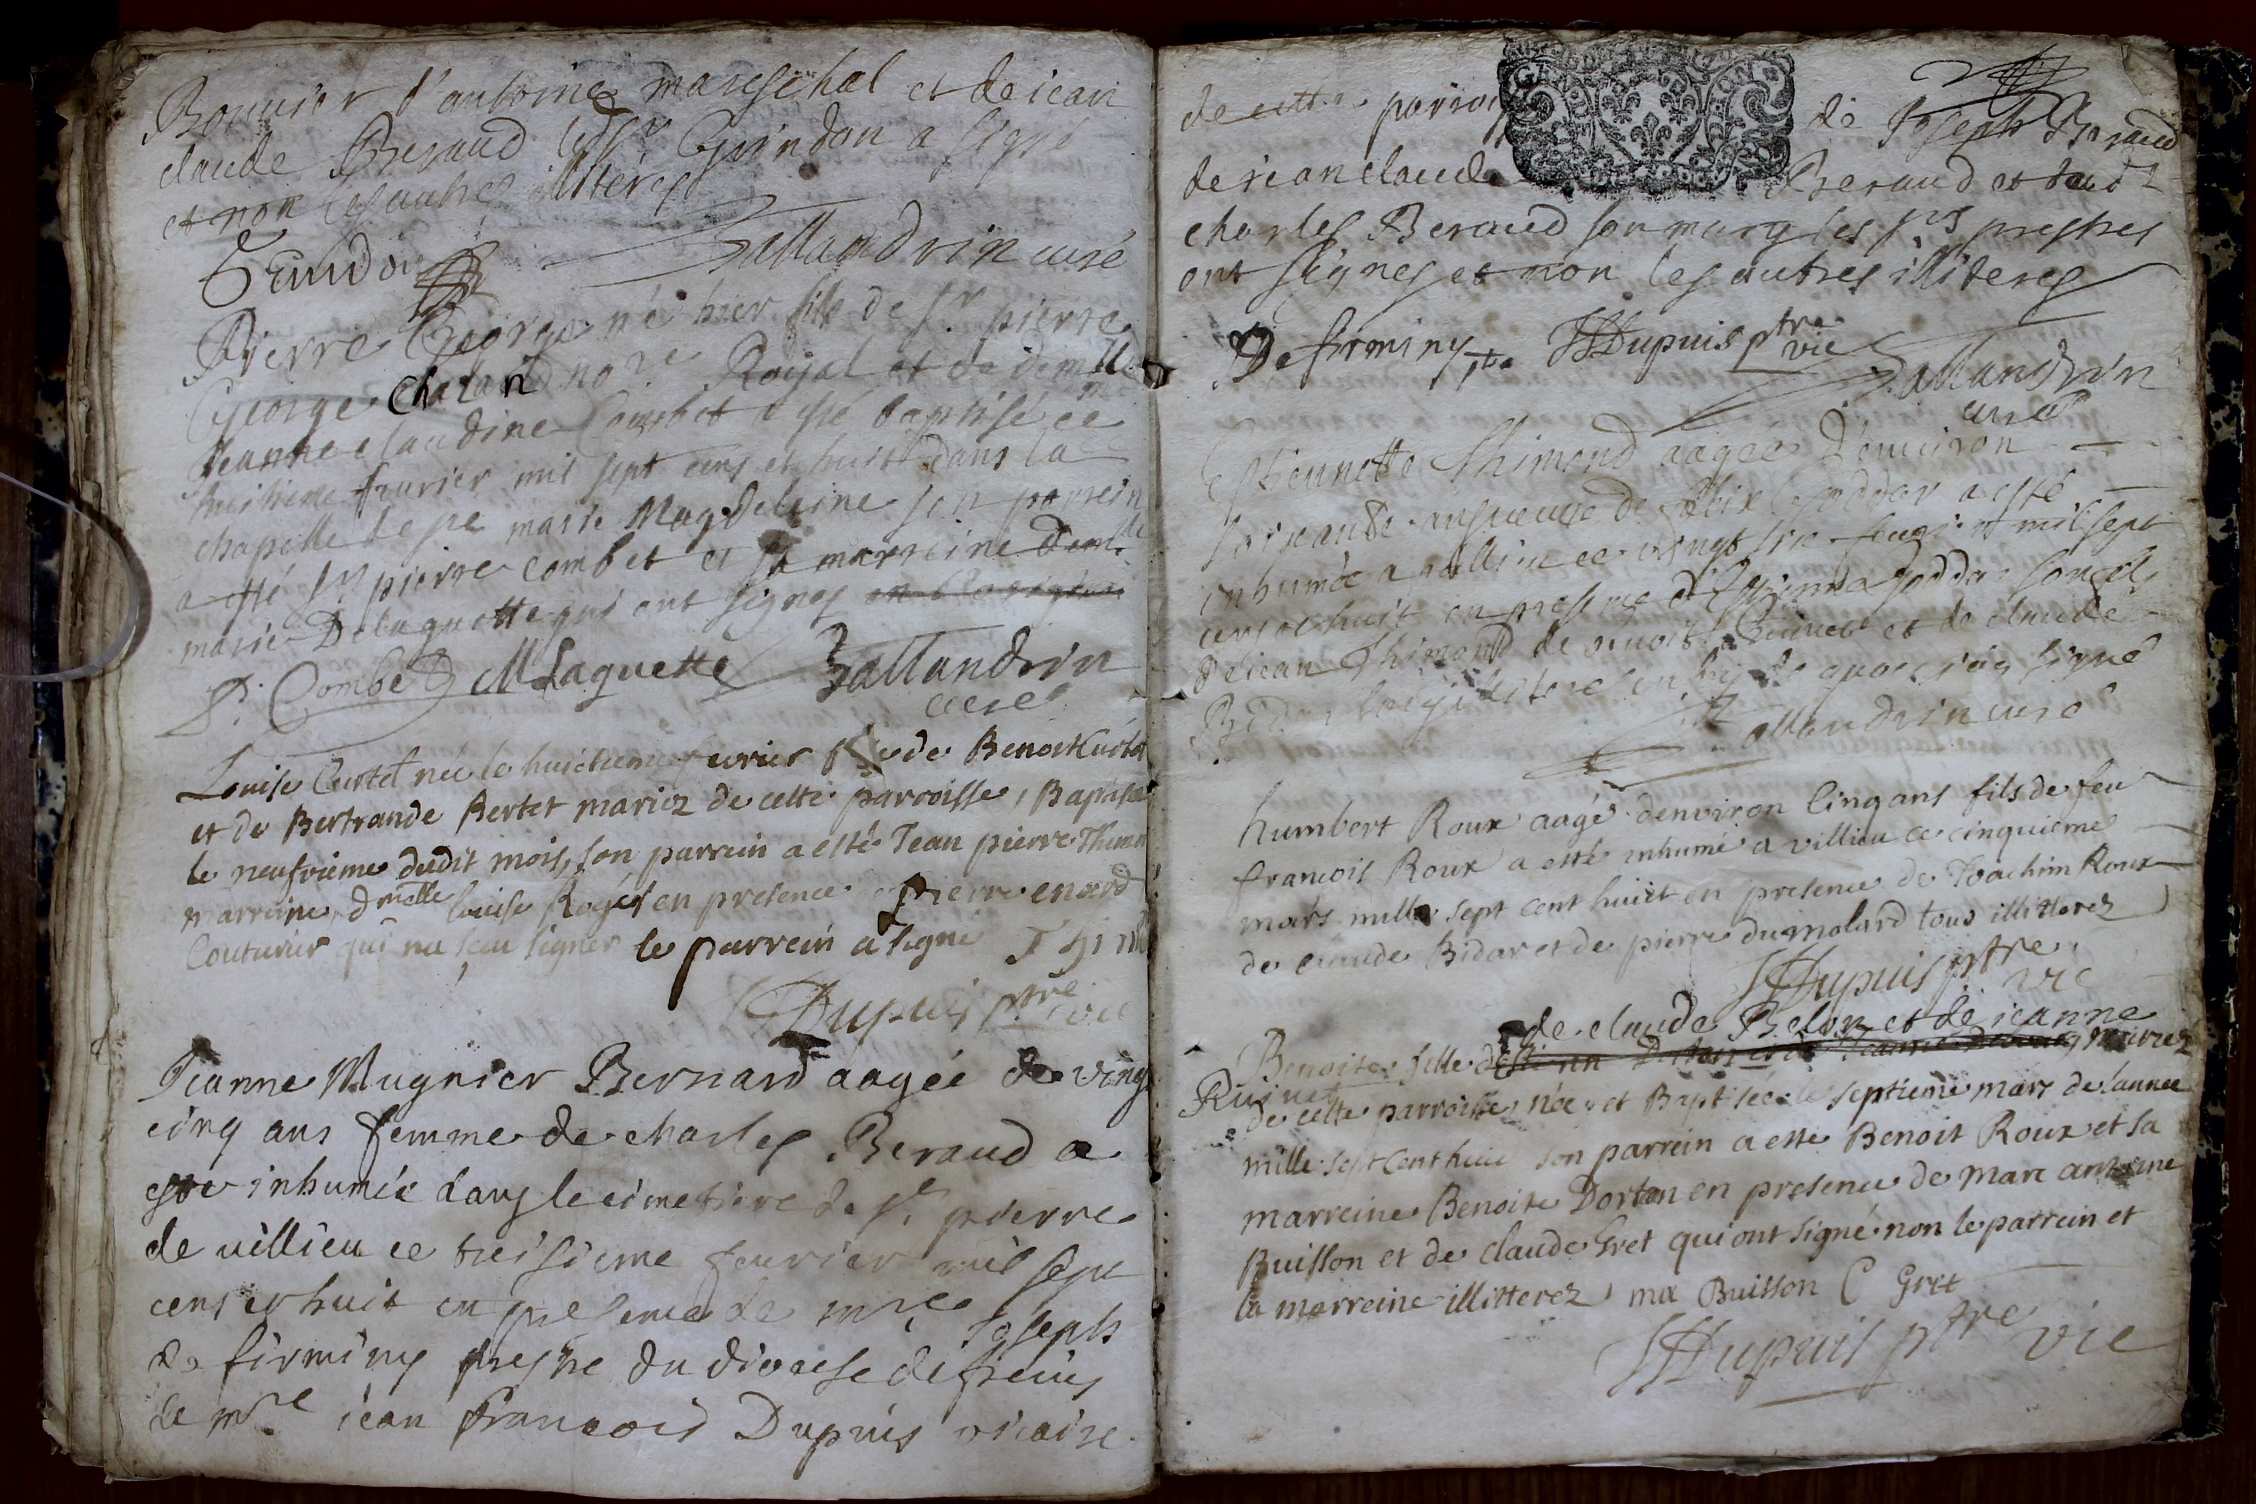 Bouvier d'antoine mareschal et de jean
claude Beraud led sr Guindon a signé
et non les autres illiterez
Guindon
Gallandrin curé
Pierre George né hier fils de sr pierre
George Chaland nore Royal et de demlle
Jeanne Claudine Combet a esté baptisé ce
huitieme feurier mil sept cens et huit dans la
chapelle de ste marie Magdeleine son parrein
a esté sr pierre combet et sa marreine demlle
marie Delaquette qui ont signés
P. Combet M Laquette Gallandrin
curé
Louise Curtet née le huictieme feurier fille de Benoit Curtet
et de Bertrande Bertet mariez de cette parroisse, Baptisée
le neufvieme dudit mois, son parrein a esté Jean pierre Thimon
marreine dmelle louise Roger en presence pierre enard
Couturier qui na sceu signer le parrein a signé Thimon
Dupuis ptre vic
Jeanne Mugnier Bernard aagée de vingt
cinq ans femme de charles Beraud a
esté inhumée dans le cimetiere de st pierre
de villieu ce treisieme feurier mil sept
cens et huit en presence de mre Joseph
de firminy prestre du diocese de
de mre jean francois Dupuis vicaire
de cette parroisse de Joseph Beraud
de jean claude Beraud et dudt
charles Beraud son mary les srs prestres
ont signes et non les autres illiteres
De firminy ptre JfDupuis ptre vic
Gallandrin
curé
Estiennette Thimond aagée d'enuiron
soixante ans veuue de felix Goddar a esté
inhumée a villieu ce vingt six feurier mil sept
cens et huit en presence d'Estienne Goddar son fils
de jean Thimond de benoit et de claude
Bidar illiteres en foy de quoi j'ay signé
Gallandrin curé
humbert Roux aagé denviron Cinq ans fils de feu
francois Roux a esté inhumé a villieu ce cinquieme
mars mille sept cent huict en presence de Joachim Roux
de claude Bidar et de pierre dumolard tous illitterez
JfDupuis ptre
vic
de claude Belon et de jeanne
Benoite fille mariez
Ruinet
de cette parroisse née et Baptisée le septieme mars de lannee
mille sept cent huict son parrein a esté Benoit Roux et sa
marreine Benoite Dortan en presence de Marc antoine
Buisson et de claude Gret qui ont signé non le parrein et
la marreine illitterez ma Buisson C Gret
JfDupuis ptre vic